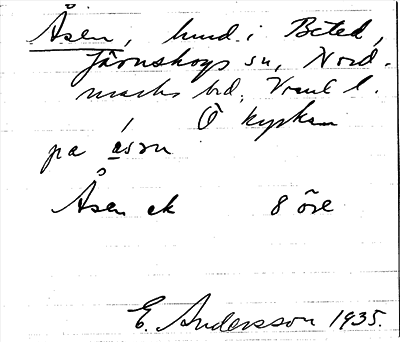 Åsen, hmd. i Beted,
Järnskogs sn, Nord-
marks hd, Vrml l.
Ö kyrkan
på åsən
Åsen ek 8 öre
E. Andersson 1935.